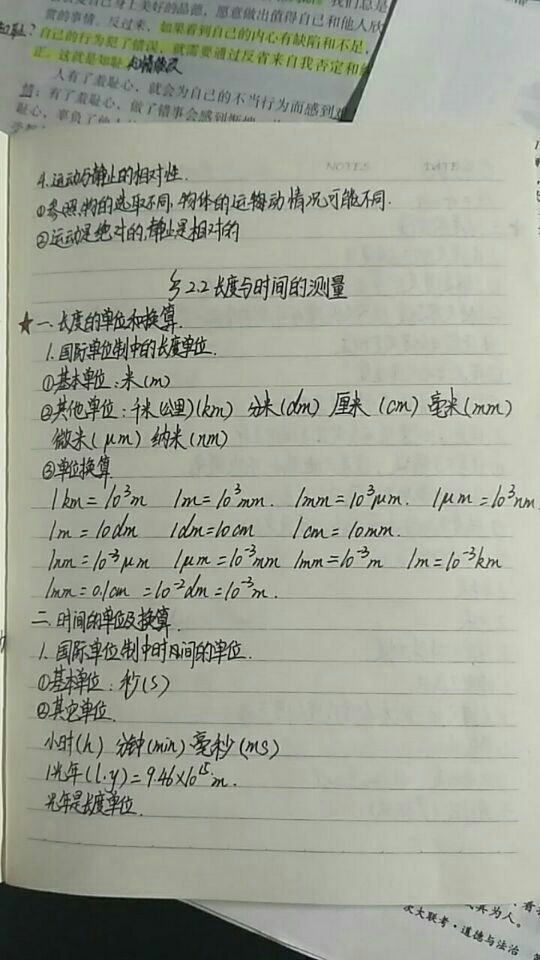 我们总是
会发自己身上美好的品德，愿意做出值得自己和他人欣
赏的事情。反过来，如果看到自己的内心有缺陷和不足，
自己的行为犯了错误，就需要通过反省来自我否定和
正。这就是知耻
人有了羞耻心，就会为自己的不当行为而感到
有了羞耻心，做了错事会感到惭愧
耻心，辜负了他人
NOTES DATE
4.运动与静止的相对性.
①参照物的选取不同,物体的运动情况可能不同.
②运动是绝对的,静止是相对的
§2.2长度与时间的测量
★一.长度的单位和换算.
1.国际单位制中的长度单位.
①基本单位:米(m)
②其他单位:千米(公里)(km) 分米(dm) 厘米(cm) 毫米(mm)
微米(μm) 纳米(nm)
③单位换算
1km=10³m 1m=10³mm. 1mm=10³μm. 1μm=10³nm.
1m=10dm 1dm=10cm 1cm=10mm.
1nm=10⁻³μm 1μm=10⁻³mm 1mm=10⁻³m 1m=10⁻³km
1mm=0.1cm =10⁻²dm=10⁻³m.
二.时间的单位及换算.
1.国际单位制中时间的单位.
①基本单位:秒(s)
②其它单位.
小时(h) 分钟(min) 毫秒(ms)
1光年(l.y)=9.46×10¹⁵m.
光年是长度单位.
其为人。
次大联考·道德与法治